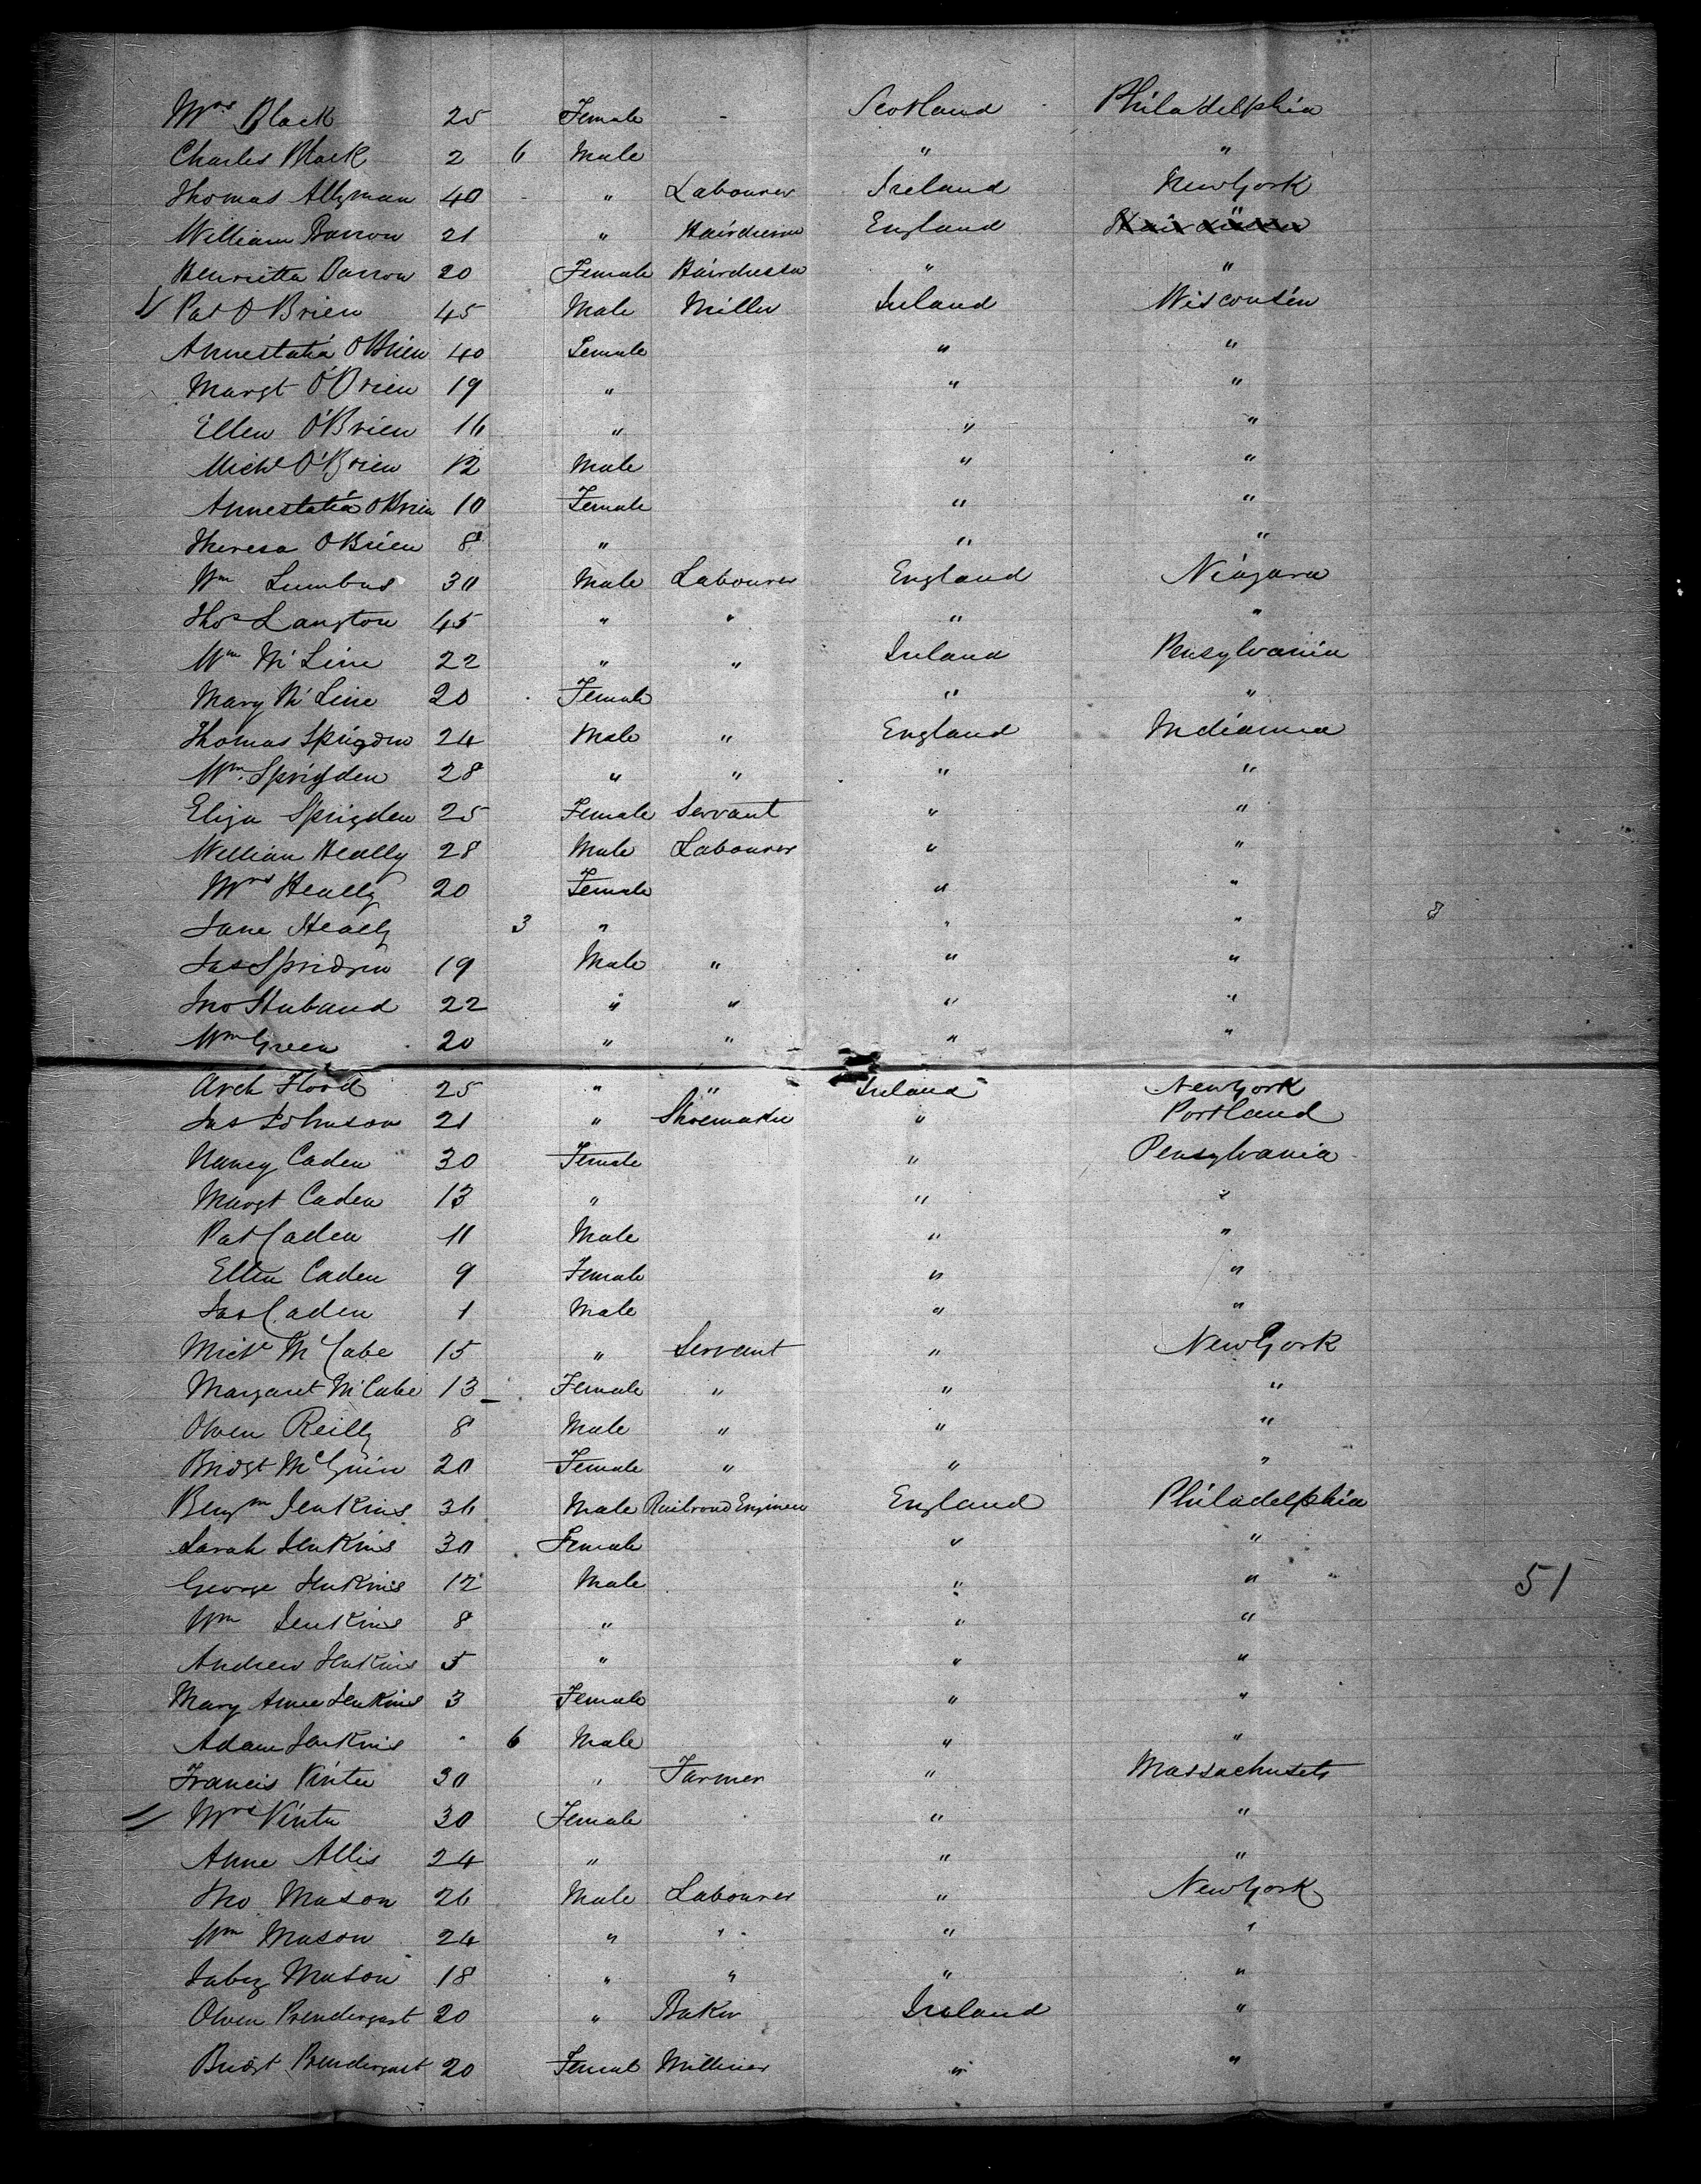 Mrs Black 25 Female - Scotland Philadelphia
Charles Black 2 6 Male " "
Thomas Allyman 40 " Labourer Ireland New York
William Barron 21 " Hairdresser England Hairdresser "
Henrietta Barron 20 Female Hairdresser " "
Pat O'Brien 45 Male Miller Ireland Wisconsin
Annestatia O'Brien 40 Female " "
Margt O'Brien 19 " " "
Ellen O'Brien 16 " " "
Michl O'Brien 12 Male " "
Annestatia O'Brien 10 Female " "
Theresa O'Brien 8 " " "
Wm Lumbus 30 Male Labourer England Niagara
Thos Langton 45 " " " "
Wm McLine 22 " " Ireland Pensylvania
Mary McLine 20 Female " "
Thomas Sprigden 24 Male " England Indianna
Wm Sprigden 28 " " " "
Eliza Sprigden 25 Female Servant " "
William Heally 28 Male Labourer " "
Mrs Heally 20 Female " "
Jane Heally 3 " " "
Jas Spridgen 19 Male " " "
Jno Huband 22 " " " "
Wm Green 20 " " " "
Arch Flood 25 " " Ireland New York
Jas Johnson 21 " Shoemaker " Portland
Nancy Caden 30 Female " Pensylvania
Margt Caden 13 " " "
Pat Caden 11 Male " "
Ellen Caden 9 Female " "
Jas Caden 1 Male " "
Michl McCabe 15 " Servant " New York
Margaret McCabe 13 Female " " "
Owen Reilly 8 Male " " "
Bridgt McGuin 20 Female " " "
Benjm Jenkins 36 Male Railroad Engineer England Philadelphia
Sarah Jenkins 30 Female " "
George Jenkins 12 Male " " 51
Wm Jenkins 8 " " "
Andrew Jenkins 5 " " "
Mary Anne Jenkins 3 Female " "
Adam Jenkins " 6 Male " "
Francis Vinter 30 " Farmer " Massachusets
Mrs Vinter 30 Female " "
Anne Allis 24 " " "
Tho Mason 26 Male Labourer " New York
Wm Mason 24 " " " "
Jabez Mason 18 " " " "
Owen Prendergast 20 " Baker Ireland "
Bridgt Prendergast 20 Female Milliner " "